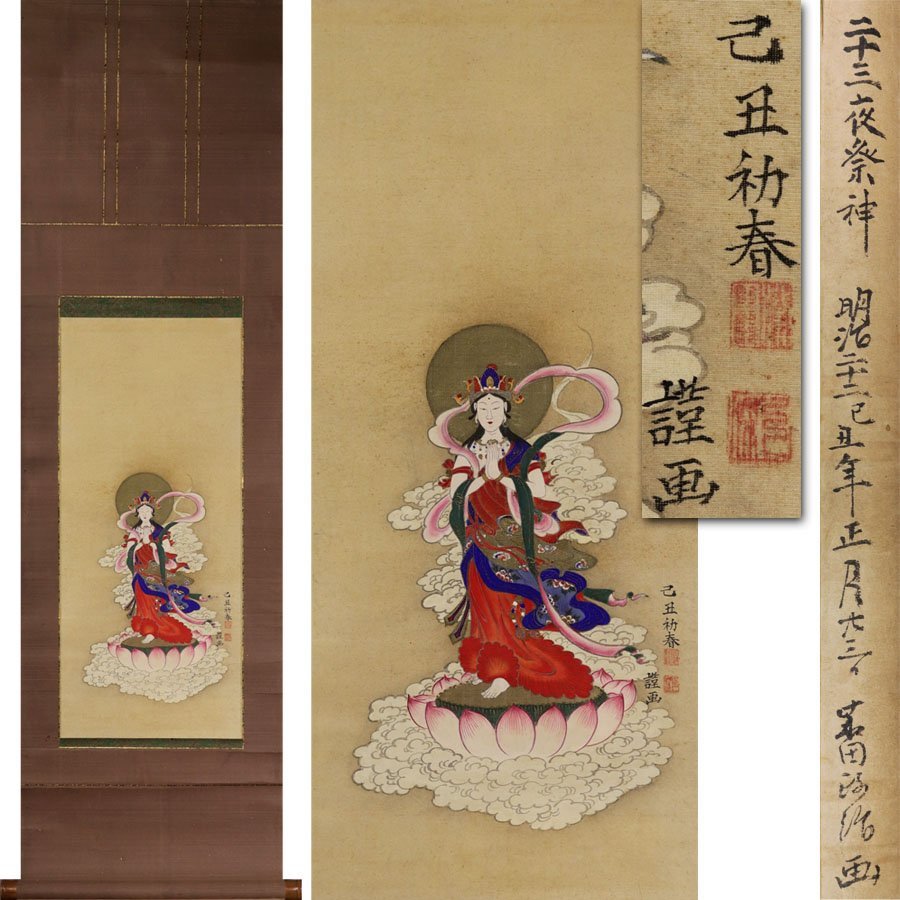 己丑初春
謹画
己丑初春
謹画
二十三夜祭神 明治二十二己丑年正月 田 画